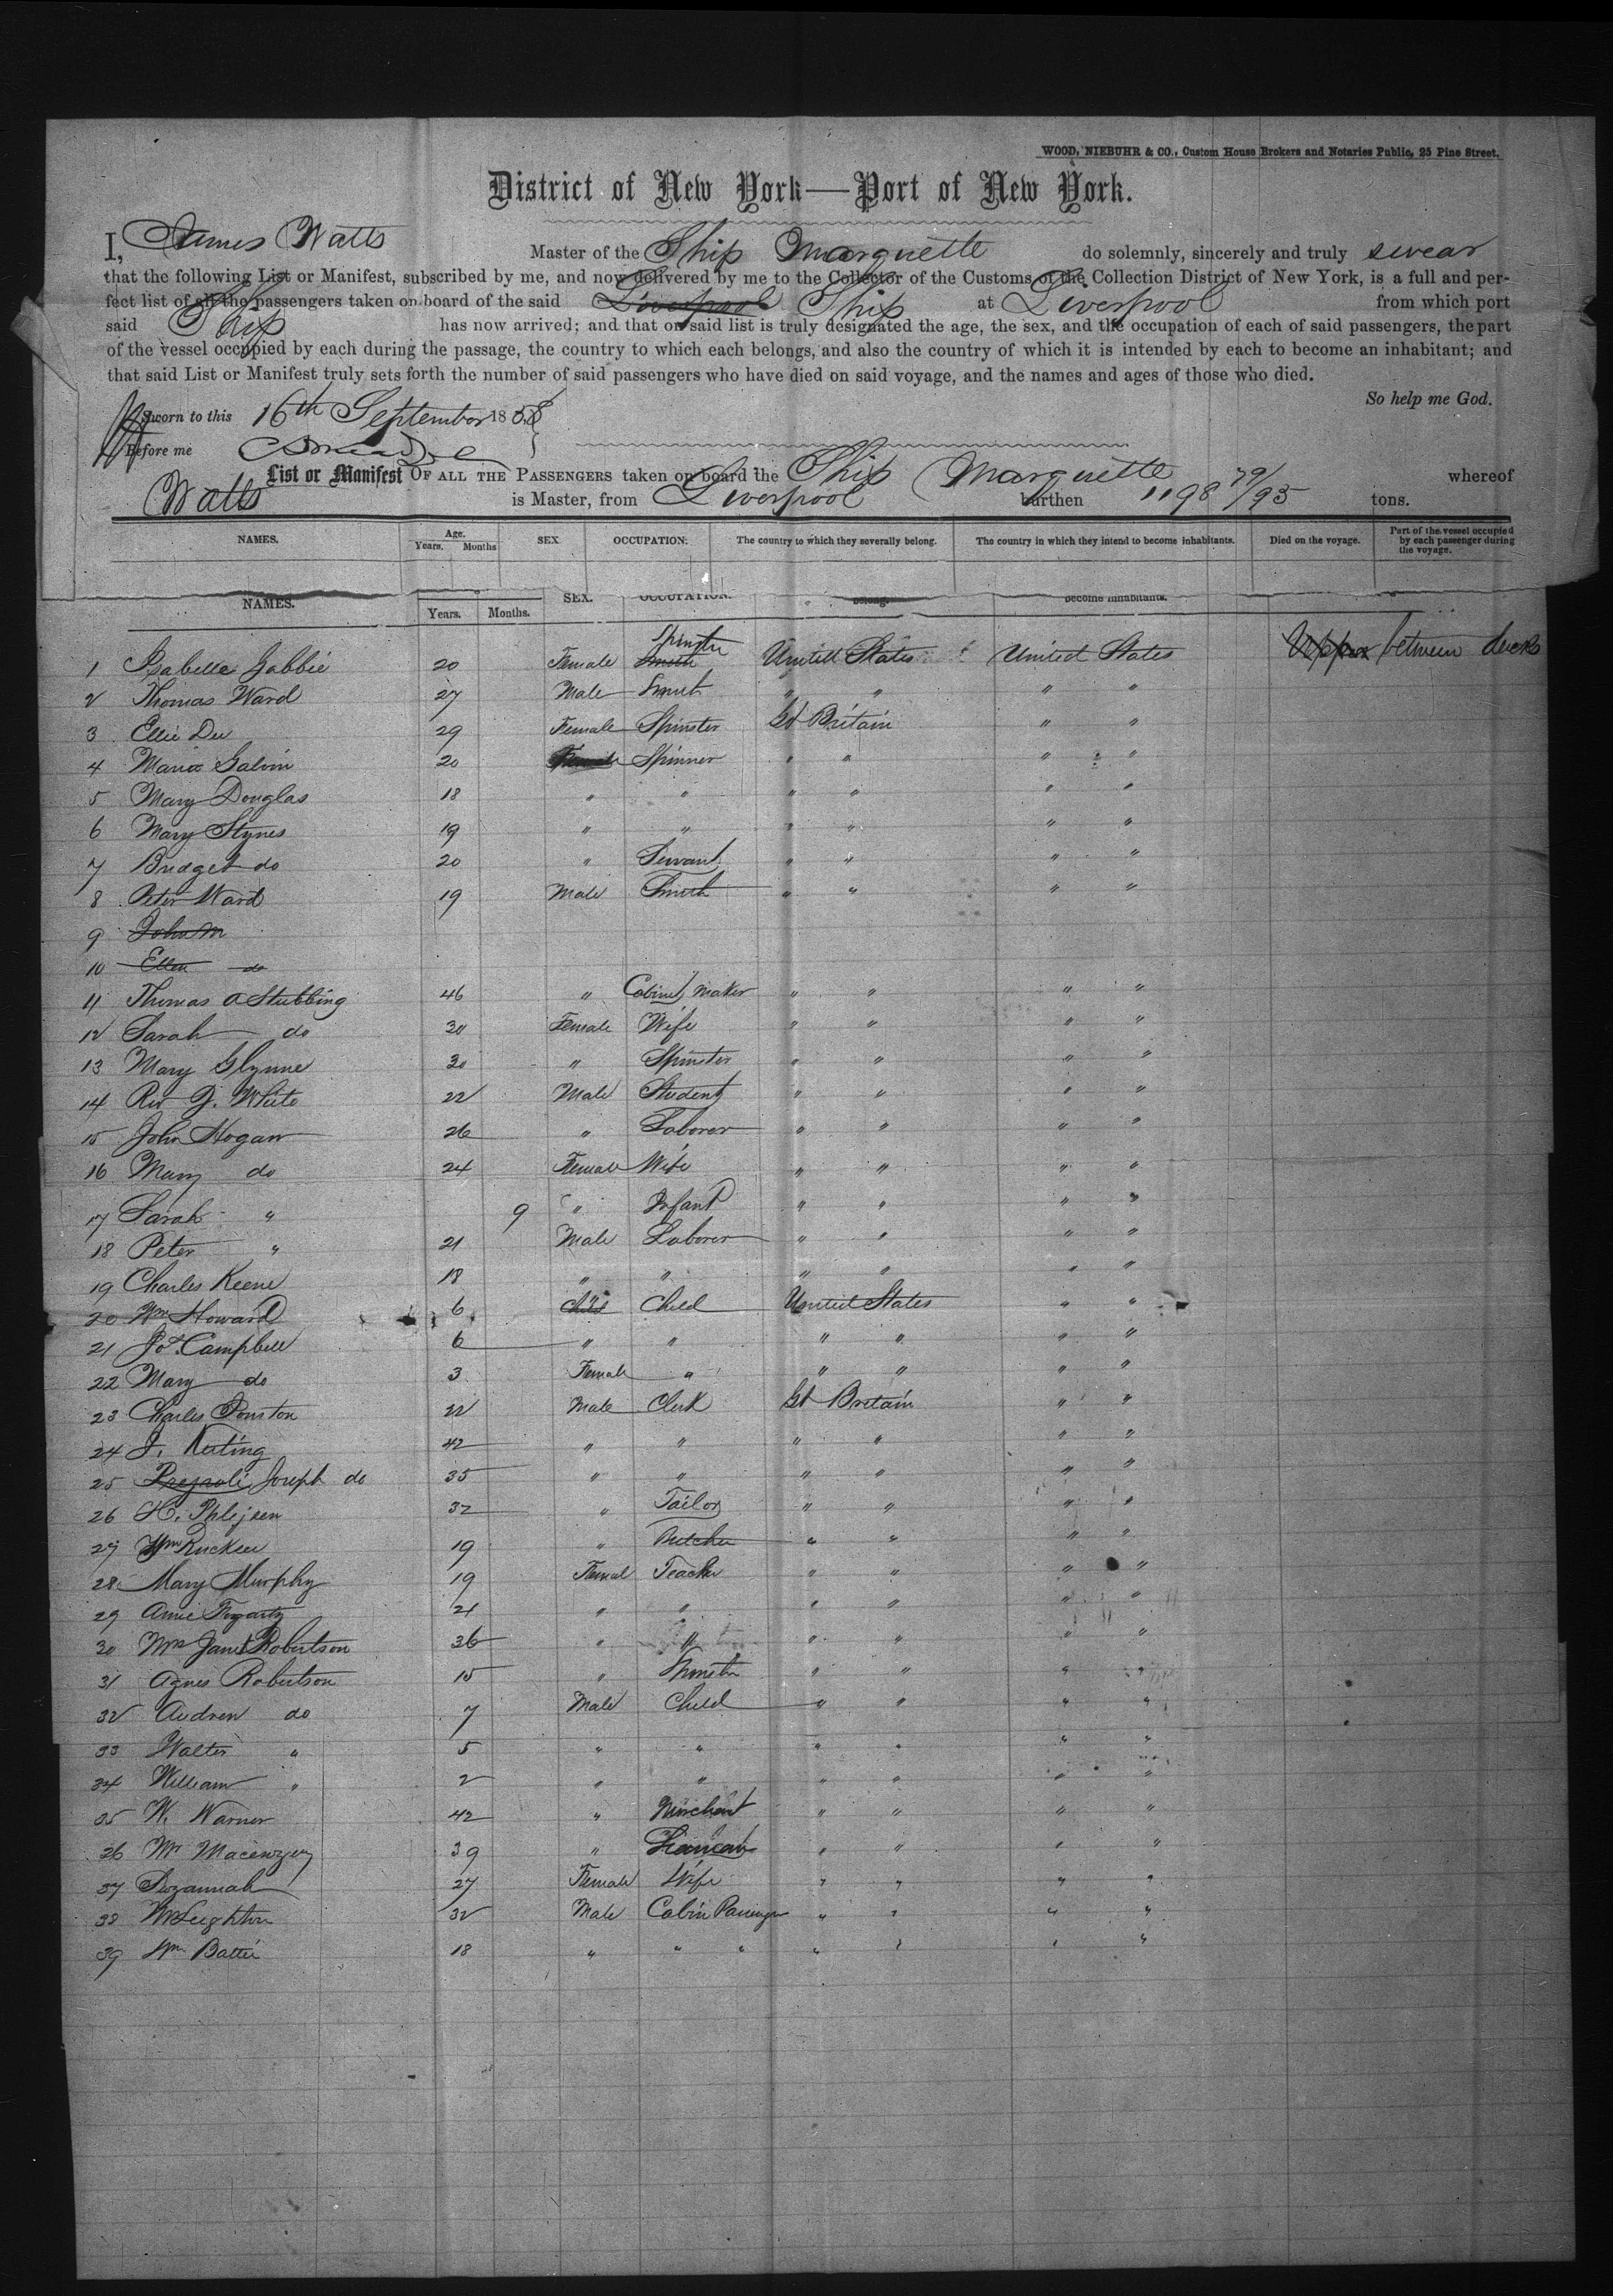 WOOD, NIEBUHR & CO., Custom House Brokers and Notaries Public, 25 Pine Street.
District of New York—Port of New York.
I, James Watts Master of the Ship Marquette do solemnly, sincerely and truly swear
that the following List or Manifest, subscribed by me, and now delivered by me to the Collector of the Customs of the Collection District of New York, is a full and per-
fect list of all the passengers taken on board of the said Liverpool Ship at Liverpool from which port
said Ship has now arrived; and that on said list is truly designated the age, the sex, and the occupation of each of said passengers, the part
of the vessel occupied by each during the passage, the country to which each belongs, and also the country of which it is intended by each to become an inhabitant; and
that said List or Manifest truly sets forth the number of said passengers who have died on said voyage, and the names and ages of those who died.
So help me God.
Sworn to this 16th September 1858
Before me
List or Manifest OF ALL THE PASSENGERS taken on board the Ship Marquette whereof
Watts is Master, from Liverpool burthen 1198 79/95 tons.
NAMES. Age. Years. Months SEX OCCUPATION. The country to which they severally belong. The country in which they intend to become inhabitants. Died on the voyage. Part of the vessel occupied by each passenger during the voyage.
NAMES. Years. Months. SEX. OCCUPATION. belong. become inhabitants.
1 Isabella Gabbie 20 Female Smith Spinster United States United States Upper between decks
2 Thomas Ward 27 Male Smith " " " "
3 Ellie Du 29 Female Spinster Gt Britain " "
4 Maria Galvin 20 Female Spinner " " " "
5 Mary Douglas 18 " " " " " "
6 Mary Stynes 19 " " " " " "
7 Bridget do 20 " Servant " " " "
8 Peter Ward 19 Male Smith " " " "
9 John M
10 Ellen do
11 Thomas A Stubbing 46 " Cabinet Maker " " " "
12 Sarah do 30 Female Wife " " " "
13 Mary Glynne 30 " Spinster " " " "
14 Rev J. White 22 Male Student " " " "
15 John Hogan 26 " Laborer " " " "
16 Mary do 24 Female Wife " " " "
17 Sarah " 9 " Infant " " " "
18 Peter " 21 Male Laborer " " " "
19 Charles Keene 18 " " " " " "
20 Wm Howard 6 Child " Child United States " "
21 Jos. Campbell 6 " " " " " "
22 Mary do 3 Female " " " " "
23 Charles Pouston 22 Male Clerk Gt Britain " "
24 J. Keating 42 " " " " " "
25 Joseph do 35 " " " " " "
26 H. 32 " Tailor " " " "
27 Wm Rucker 19 " Butcher " " " "
28 Mary Murphy 19 Femal Teacher " " " "
29 Annie Fogarty 21 " " " " " "
30 Mrs Janet Robertson 36 " " " " " "
31 Agnes Robertson 15 " Spinster " " " "
32 Andrew do 7 Male Child " " " "
33 Walter " 5 " " " " " "
34 William " 2 " " " " " "
35 W. Warner 42 " Merchant " " " "
36 Mr 39 " " " " "
37 Suzannah 27 Female Wife " " " "
38 Leighton 32 Male Cabin Passenger " " " "
39 Wm Battie 18 " " " " " " "